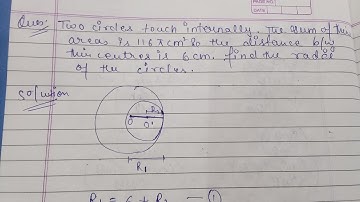 Ques: Two circles touch internally. The sum of their
areas is 116π cm² & the distance b/w
their centres is 6 cm. find the radii
of the circles.
Solution
O O' R2
R1
R1 = 6 + R2 — ①